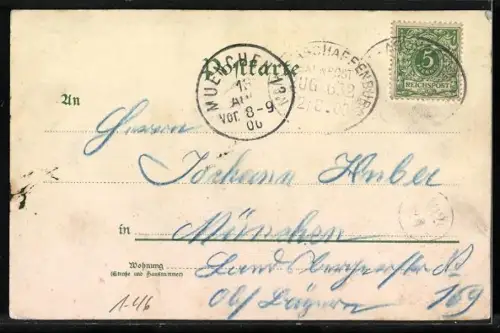 Postkarte
MUENCHEN
VOR. 8-9
00
ASCHAFFENBURG
BAHNPOST
ZUG 632
5
REICHSPOST
An
Herrn
Johann Huber
in München
Wohnung
(Straße und Hausnummer)
Landsbergerstr. No
169
Obf. Bayern
1-46